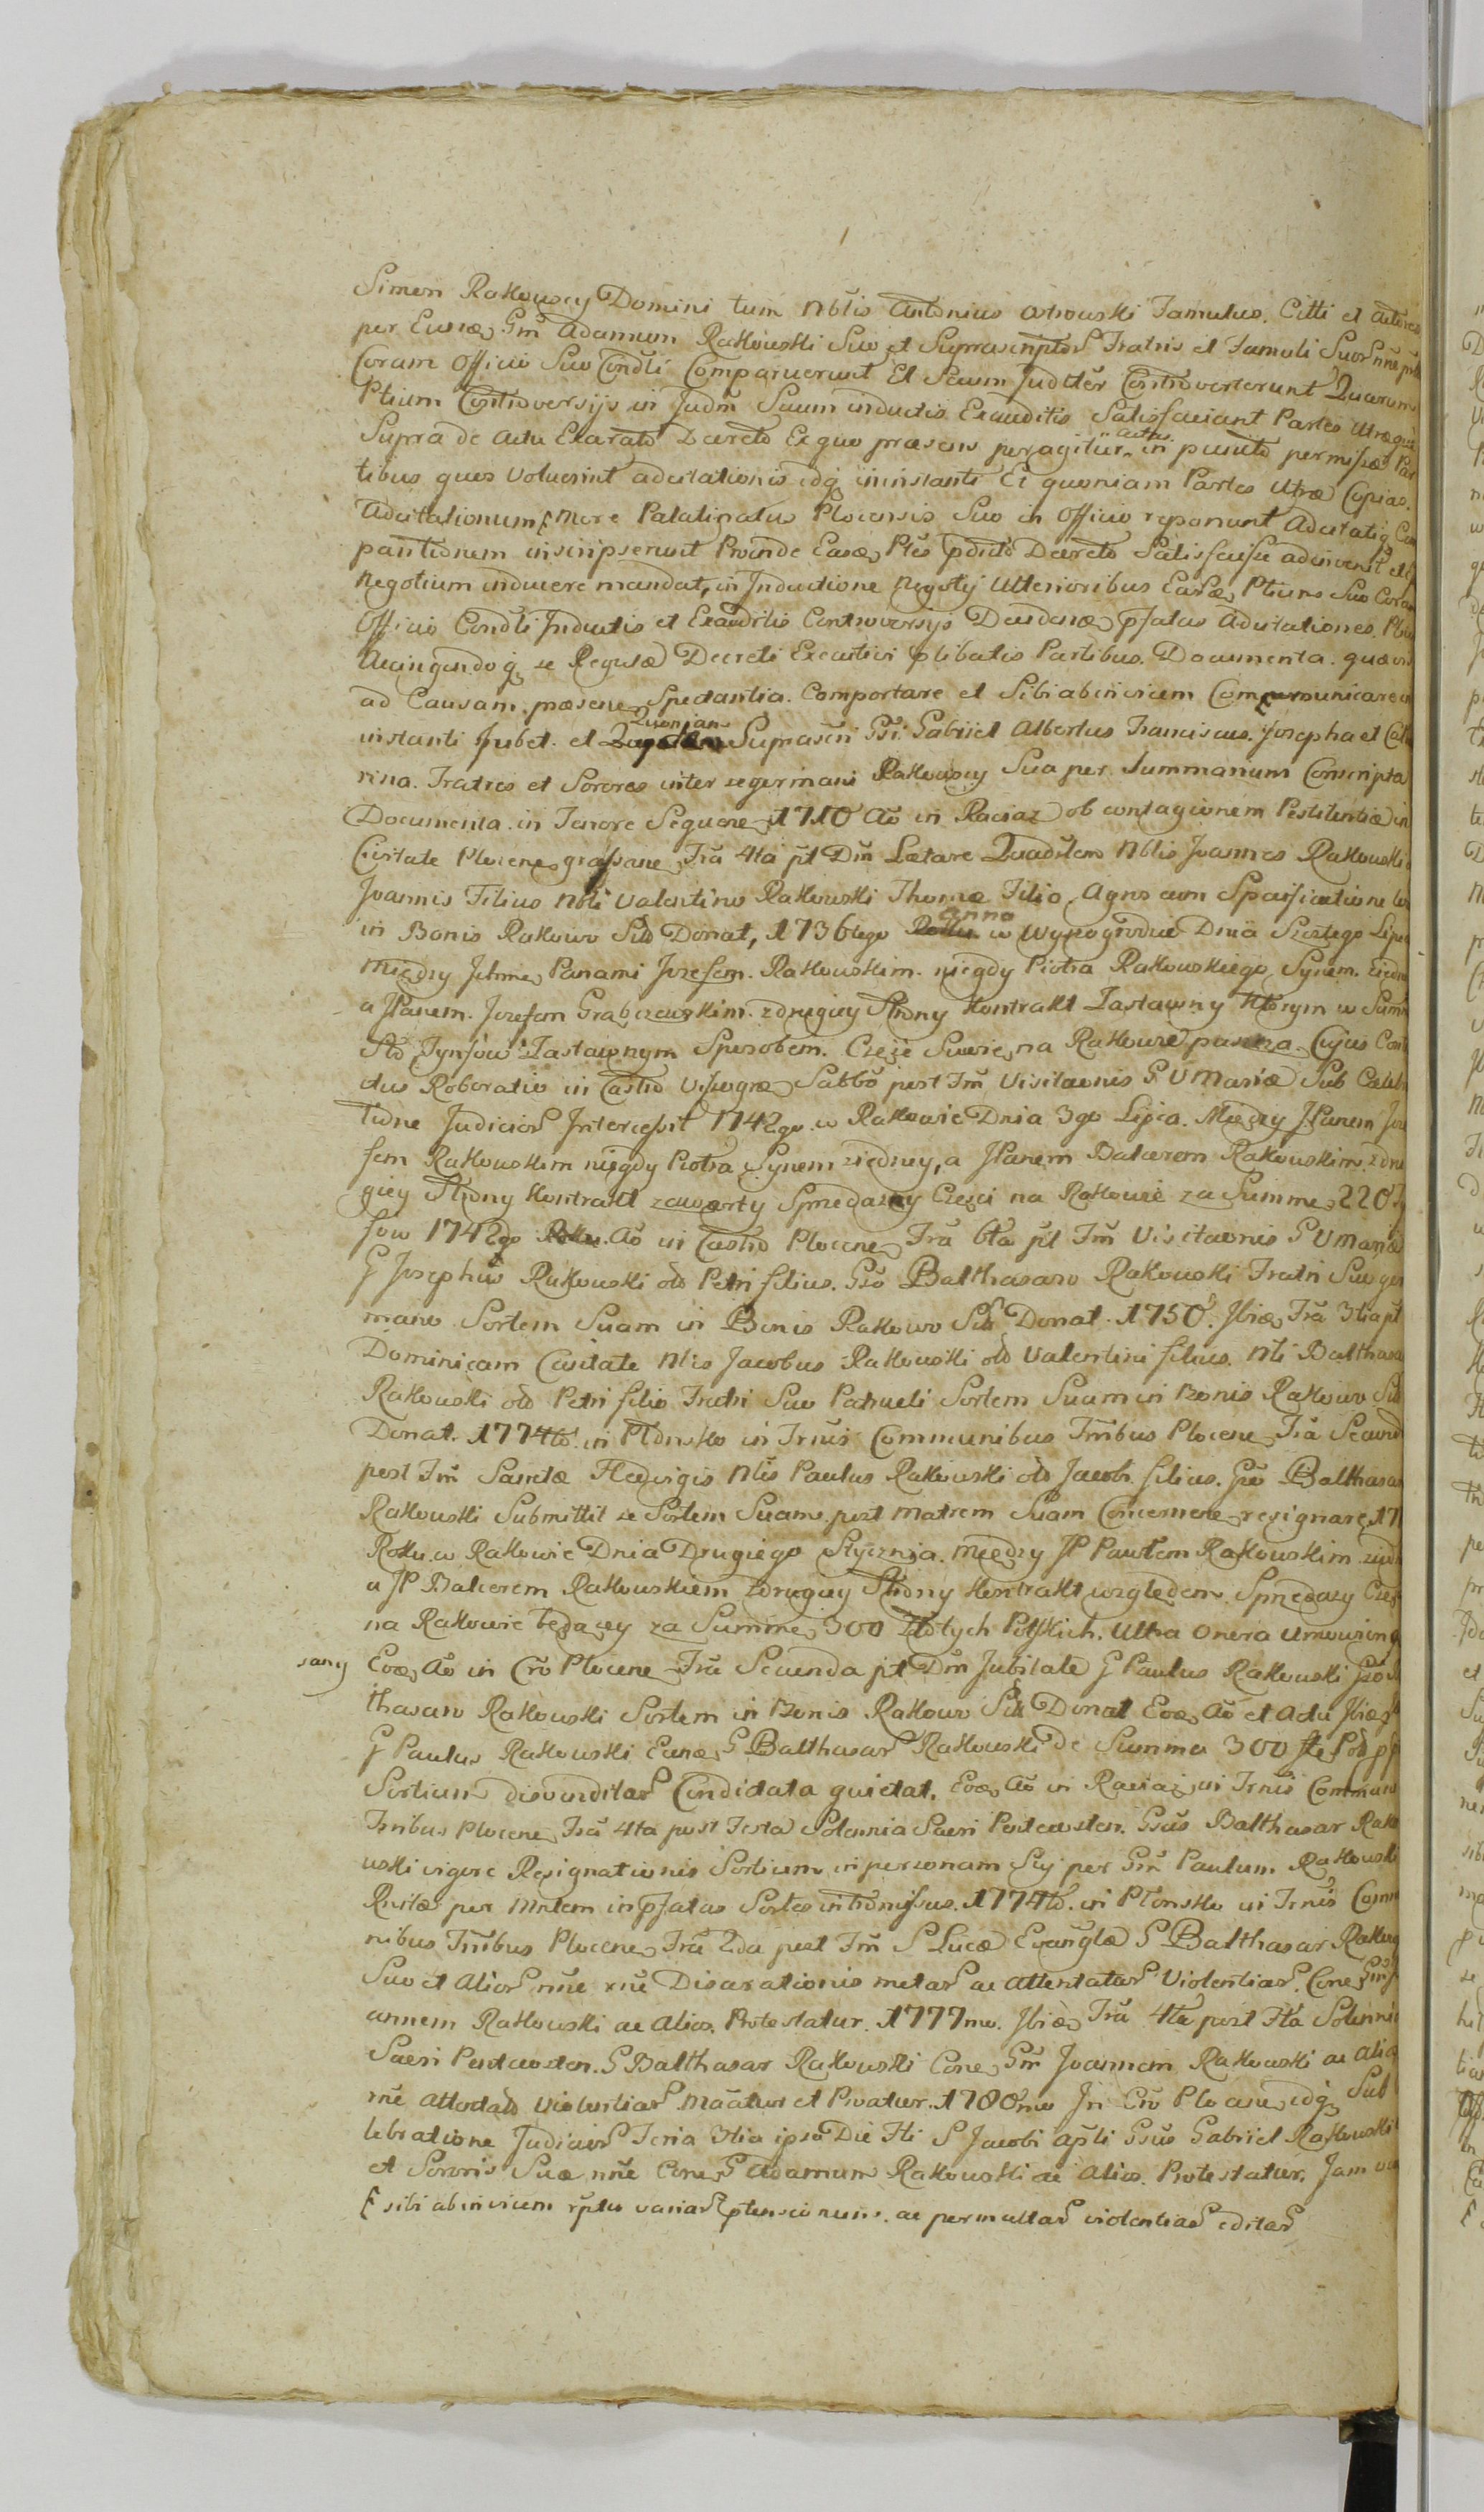 Simon Rakowscy Domini tum Nblis Antonius Famulus. Citti et
per Eund Gm Adamum Rakowski Suo et Suprascriptor Fratris et Famuli Suor nne
Coram Officio Suo Condli Comparuerunt Et Secum Judtler Controverterunt Quarum
Ptium Controversijs in Judm Suum inductis Exauditis Satisfaciant Partes Utræque
Supra de Actu Exarato Decreto Ex quo præsens peragitur actus in puncto permissæ Par
tibus quas voluerint adcitationis idq ininstanti Et quoniam Partes Utræ Copias
Adcitationum more Palatinatus Plocensis Suo in Officio reponunt Adcitatiq Com
paritionem inscripserunt Proinde Easd Ptes pdicto Decreto Satisfecisse adinvenit et
Negotium inducere mandat, in Inductione Negotij Ulterioribus Eard Ptium Suo Coram
Officio Condli Inductis et Exauditis Controversijs Decidend pfatas Adcitationes
Accingendo q se Regulæ Decreti Executivi plibatis Partibus. Documenta. quævis
ad Causam præsene Spectantia. Comportare et Sibi abinvicem Communicare
instanti Jubet. et Quoniam Suprascri Gsi Gabriel Albertus Franciscus. Josepha et Cath
rina. Fratres et Sorores inter se germani Rakowscy Sua per Summarium Conscripta
Documenta. in Tenore Sequene 1710 Ao in Raciaz ob contagionem Pestilentiæ in
Civitate Plocene grassane Fria 4ta pt Dm Lætare Quadrlem Nblis Joannes Rakowski
Joannis Filius Nbli Valentino Rakowski Thomæ Filio Agros cum Specificatione
in Bonis Rakowo Sito Donat, 1736tego Anno w Wyszogrodzie Dnia Szóstego Lipca
między Ichme Panami Jozefem. Rakowskim. niegdy Piotra Rakowskiego Synem. ziedney
a JPanem. Jozefem Grabczewskim. zdrugiey Strony Kontrakt Zastawny Którym w Summ
Sto Tynfow Zastawnym Sposobem. Część Swoię na Rakowie puszcza. Cujus Con
tus Roboratio in Castro Visogrn Sabbo post Fm Visitaonis B V Mariæ Sub Celebr
tione Judicior Intercessit 1742go w Rakowie Dnia 3go Lipca. Między JPanem Joz
fem Rakowskim niegdy Piotra Synem ziedney, a JPanem Balcerem Rakowskim zdru
giey Strony Kontrakt zawarty Sprzedazny Części na Rakowie za Summe 220 Ty
fow 1742go Ao in Castro Plocene Fria 6ta pt Fm Visitaonis B V Mariæ
G Josephus Rakowski old Petri filius. Gso Balthasaro Rakowski Fratri Suo ger
mano Sortem Suam in Bonis Rakowo Sit Donat. 1750. Ibid Fria 3tia pt
Dominicam Cantate Nlis Jacobus Rakowski old Valentini filius. Nli Balthasa
Rakowski old Petri filio Fratri Suo Patrueli Sortem Suam in Bonis Rakowo Sit
Donat. 1774to in Plonsko in Trnis Communibus Trribus Plocene Fria Secund
post Fm Sanctæ Hedvigis Nlis Paulus Rakowski old Jacobi filius. Gso Balthasar
Rakowski Submittit se Sortem Suam post matrem Suam Concernen resignare 17
Roku w Rakowie Dnia Drugiego Stycznia. między JP Pawłem Rakowskim ziedn
a JP Balcerem Rakowskiem zdrugiey Strony Kontrakt względem Sprzedazy Częś
na Rakowie będącey za Summe 300 Złotych Polskich. Ultra Onera
sany Eod Ao in Cro Plocene Fria Secunda pt Dm Jubilate G Paulus Rakowski Gso
thasaro Rakowski Sortem in Bonis Rakowo Sit Donat Eod Ao et Actu Ibid
G Paulus Rakowski Eund G Balthasar Rakowski de Summa 300
Sortium divenditar Condictata quietat. Eod Ao in Raciaz in Trnis Commun
Trribus Plocene Fria 4ta post Festa Solennia Sacri Pentecosten. Gsus Balthasar Rako
wski vigore Resignationis Sortium in personam Sui per Gm Paulum Rakowski
per Mntem in pfatas Sortes intromissus. 1774to. in Plonsko in Trnis Comm
nibus Trribus Plocene Fria 2da post Fm S Lucæ Evanglæ G Balthasar Rakow
Suo et Alior nne rne Disarationis metar ac attentatar Violentiar. Cone Gm
annem Rakowski ac Alios. Protestatur. 1777mo. Ibid Fria 4ta post Fta Solennia
Sacri Pentecosten. G Balthasar Rakowski Cone Gm Joannem Rakowski ac Alios
rne attentat Violentiar manatur et Pvatur. 1780mo In Cro Plocene idq Sub
lebratione Judicior Feria 3tia ipso Die Fti S Jacobi Apli Gsus Gabriel Rakowski
et Sororis Suæ nne Cone G Adamum Rakowski ac Alios. Protestatur. Jam
sibi abinvicem rptu variar ptensionum. ac permultar violentiar editar